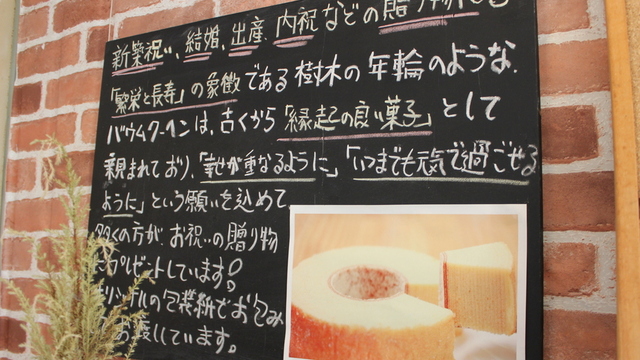 新築祝い、結婚、出産、内祝などの贈り物にも
「繁栄と長寿」の象徴である樹木の年輪のような、
バウムクーヘンは、古くから「縁起の良い菓子」として
親まれており、「幸せが重なるように」、「いつまでも元気で過ごせる
ように」という願いを込めて
多くの方が、お祝いの贈り物
プレゼートしています!
オリジナルの包装紙でお包み
お渡ししています。